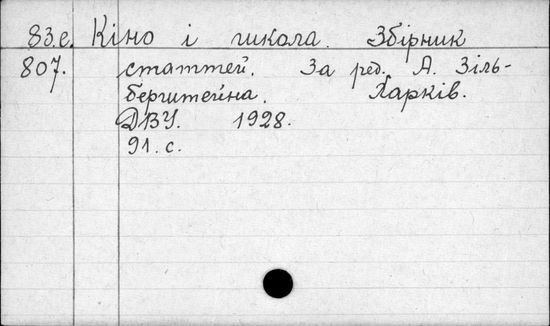 83.е. Кіно і школа. Збірник
807. статтей. За ред. А. Зіль-
берштейна. Харків.
ДВУ. 1928.
91. с.